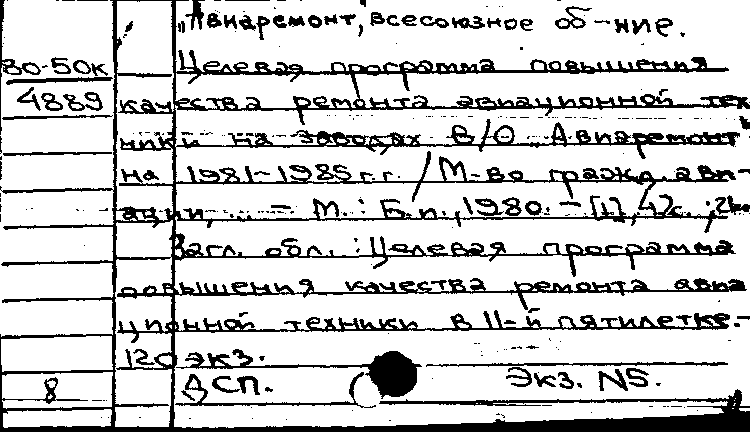 „Авиаремонт, всесоюзное об-ние.
80-50к Целевая программа повышения
4889 качества ремонта авиационной тех
ники на заводах В/О „Авиаремонт"
на 1981-1985г.г. / М-во гражд. ави-
ации, ... - М.: Б.и., 1980. - [1], 42с.;
Загл. обл.: Целевая программа
повышения качества ремонта авиа
ционной техники в 11-й пятилетке.-
120 экз.
8 ДСП. Экз. N5.